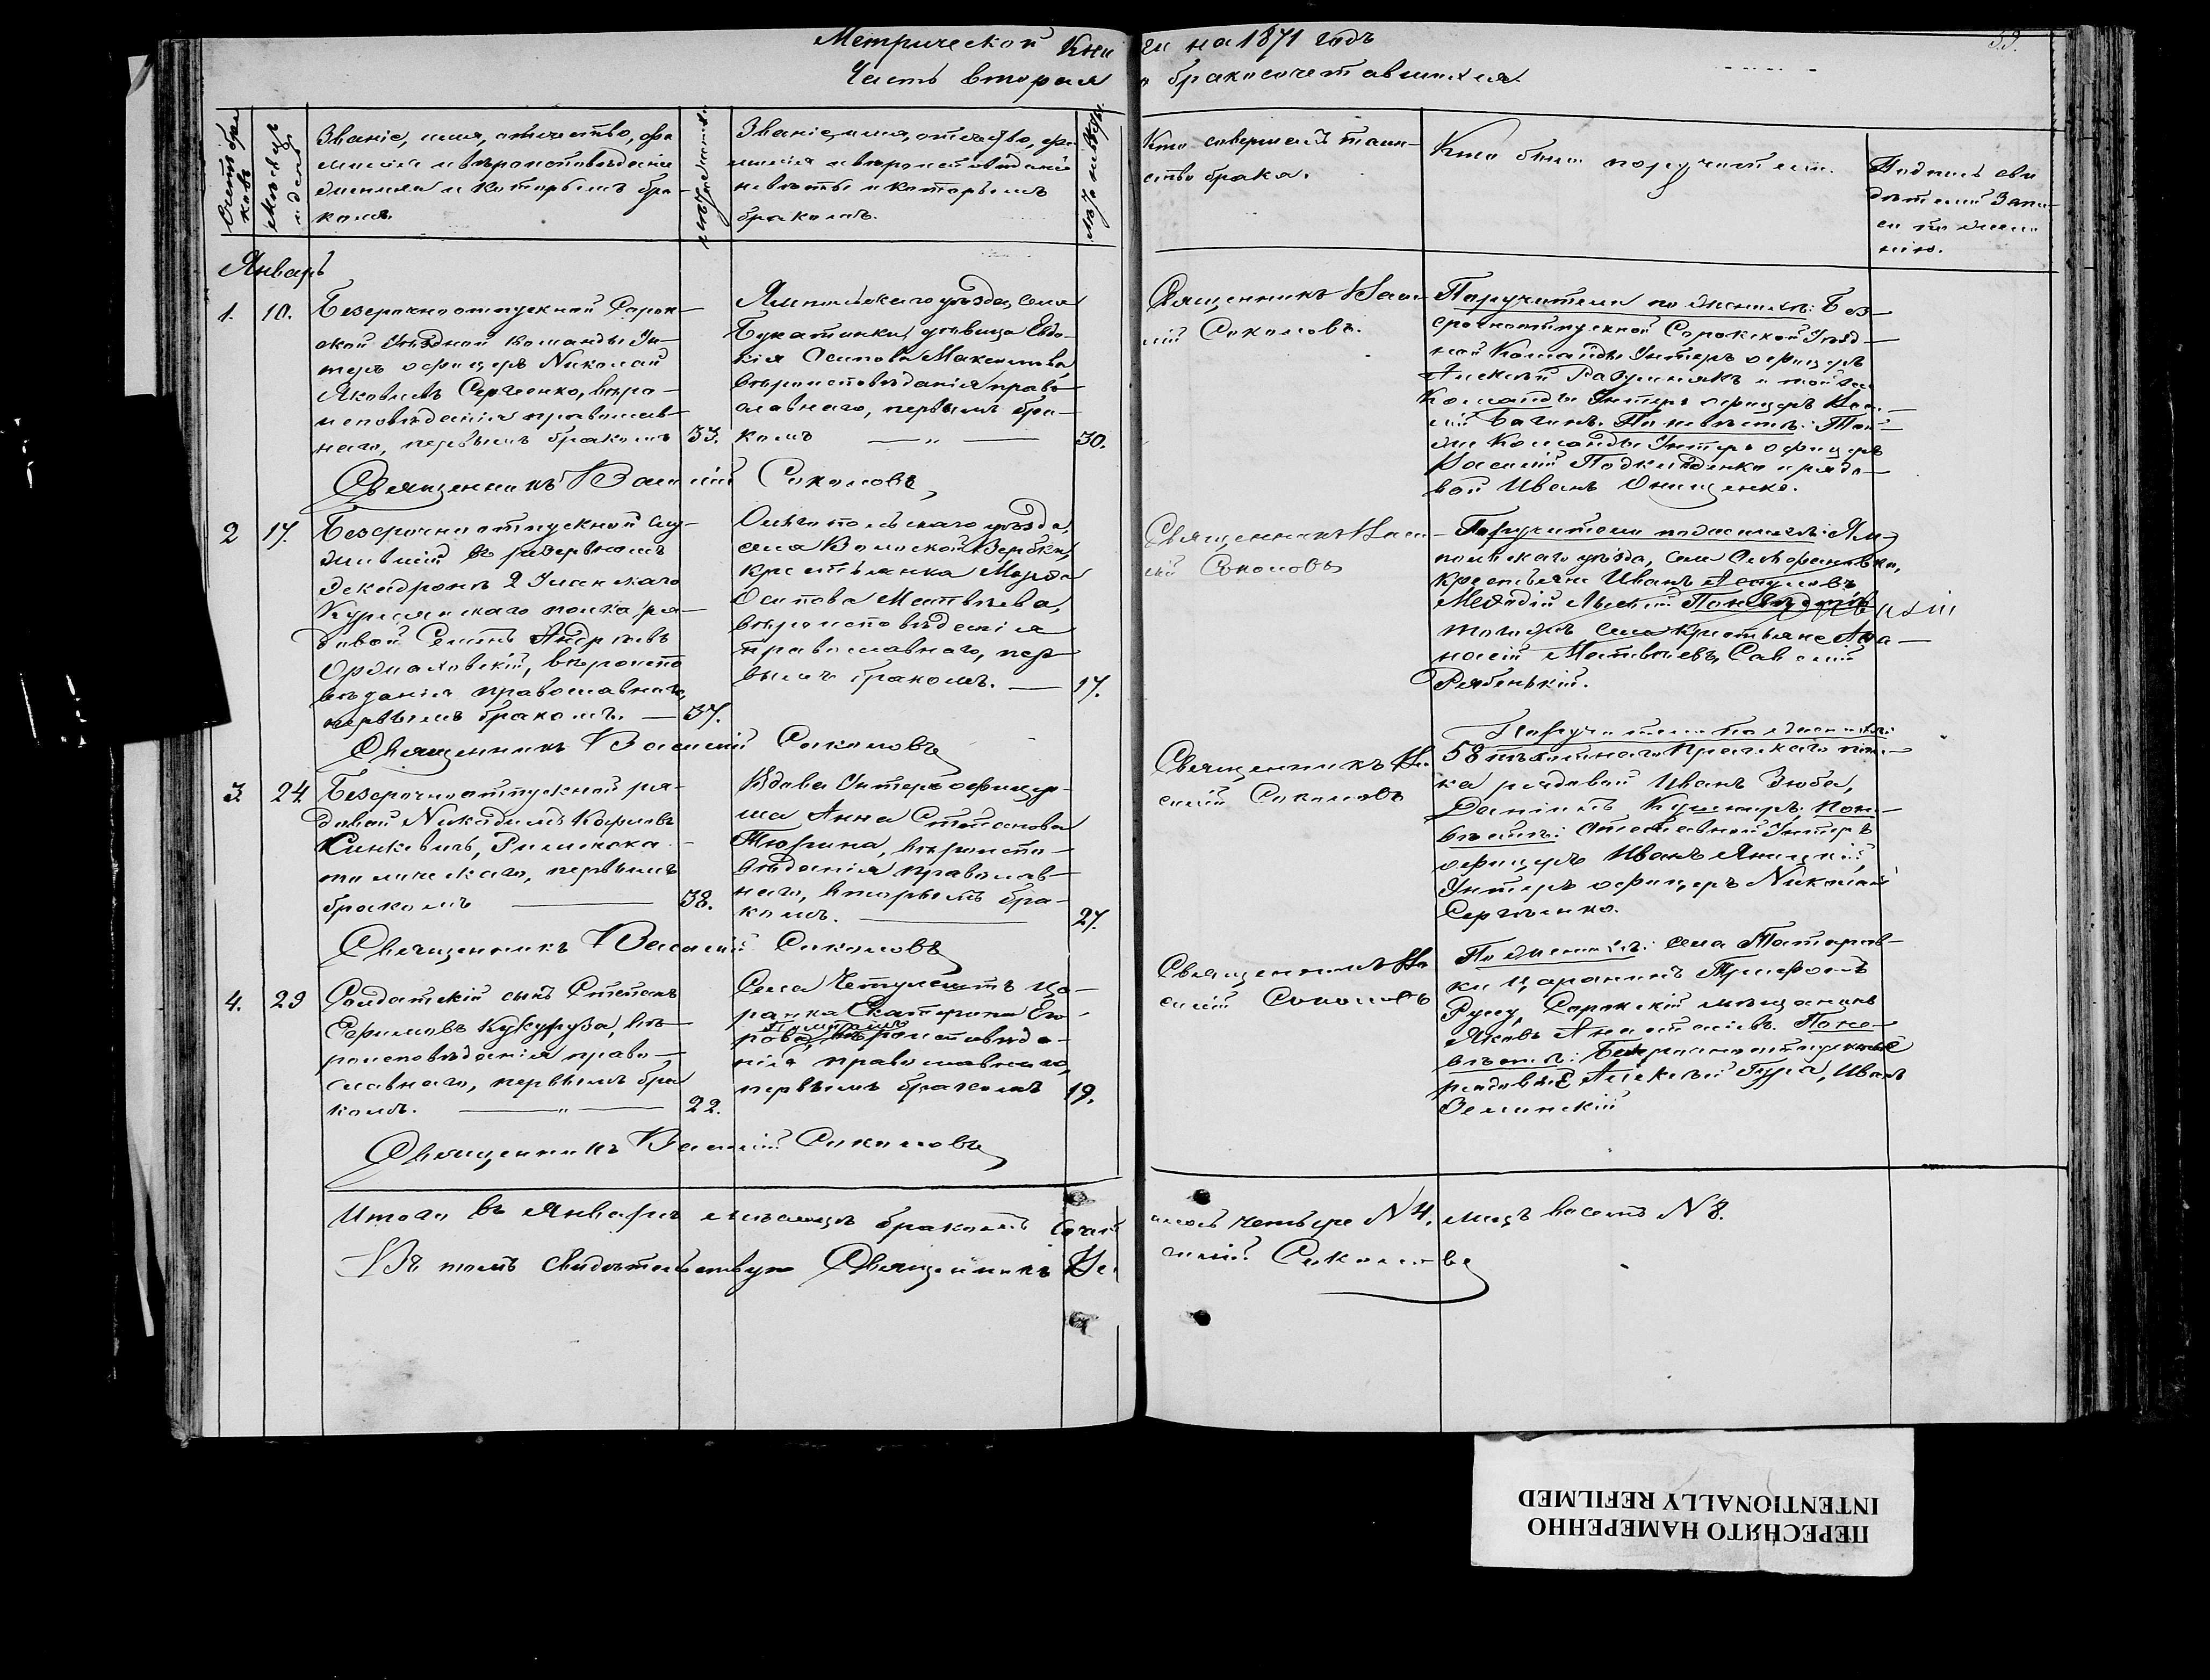 Метрической Книги на 1871 годъ
Часть вторая о бракосочетавшихся.
59.
Счетъ браковъ
Мѣсяцъ и день
Званіе, имя, отчество, фа-
милія и вѣроисповѣданіе
жениха и которымъ бра-
комъ.
Лѣта жениха
Званіе, имя, отчество, фа-
милія и вѣроисповѣданіе
невѣсты и которымъ
бракомъ.
Лѣта невѣсты
Кто совершалъ таин-
ство брака.
Кто были поручители.
Подпись сви
дѣтелей Запи-
си по жела-
нію.
Январь
1. 10.
Безсрочноотпускной Сорок-
ской Уѣздной Команды Ун-
теръ офицеръ Николай
Яковлевъ Сергѣенко, вѣро-
исповѣданія православ-
наго, первымъ бракомъ 33.
Ямпольскаго уѣзда, села
Букатинки, дѣвица Евдо-
кія Осипова Максимова
вѣроисповѣданія право-
славнаго, первымъ бра-
комъ — „ — 30.
Священникъ Васи-
лій Соколовъ.
Поручители по женихѣ: Без-
срочноотпускной Сорокской Уѣзд-
ной Команды Унтеръ офицеръ
Алексѣй и той же
Команды Унтеръ офицеръ Васи-
лій По невѣстѣ: Той
же Команды Унтеръ офицеръ
Василій и рядо-
вой Иванъ Онищенко.
Священникъ Василій Соколовъ
2 17.
Безсрочноотпускной слу-
жившій въ резервномъ
эскадронѣ 2 Уланскаго
Курляндскаго полка ря-
довой Семенъ Андреевъ
вѣроиспо
вѣданія православнаго,
первымъ бракомъ. — 37.
Ольгопольскаго уѣзда,
села Волоской Вербки,
крестьянка Марѳа
Осипова Матвѣева,
вѣроисповѣданія
православнаго, пер
вымъ бракомъ. — 17.
Священникъ Васи-
лій Соколовъ
Поручители по женихѣ: Ям-
польскаго уѣзда, села
крестьяне Иванъ
Меѳодій
того же села крестьяне Аѳа-
насій Матвѣевъ, Савелій
Рябенькій.
Священникъ Василій Соколовъ
3. 24.
Безсрочноотпускной ря-
довой Никодимъ
Синкевичъ, Римскока-
толическаго, первымъ
бракомъ — 38.
Вдова Унтеръ офицер-
ша Анна Степанова
Тюрина, вѣроиспо-
вѣданія православ-
наго, вторымъ бра-
комъ. — 27.
Священникъ Ва
силій Соколовъ
Поручители по женихѣ:
58 пѣхотнаго Прагскаго пол-
ка рядовой Иванъ Зюба,
Даніилъ Кушниръ; по не-
вѣстѣ: отставной Унтеръ
офицеръ Иванъ
Унтеръ офицеръ Николай
Сергѣенко.
Священникъ Василій Соколовъ
4. 29
Солдатскій сынъ Степанъ
Ефимовъ Кукуруза, вѣ-
роисповѣданія право-
славнаго, первымъ бра
комъ. — „ — 22.
Села ца-
ранка Екатерина Его-
рова, вѣроисповѣда-
нія православнаго,
первымъ бракомъ 19.
Священникъ Ва
силій Соколовъ
По женихѣ: села Татаров-
ки царанинъ Трифонъ
Руссу, Сорокскій мѣщанинъ
Яковъ По не-
вѣстѣ: Безсрочноотпускные
рядовые Алексѣй Иванъ
Зелинскій
Священникъ Василій Соколовъ
Итого въ Январѣ мѣсяцѣ бракомъ сочеталось четыре N 4. лицъ восемь N 8.
Въ томъ свидѣтельствую Священникъ Василій Соколовъ
ПЕРЕСНЯТО НАМЕРЕННО
INTENTIONALLY REFILMED